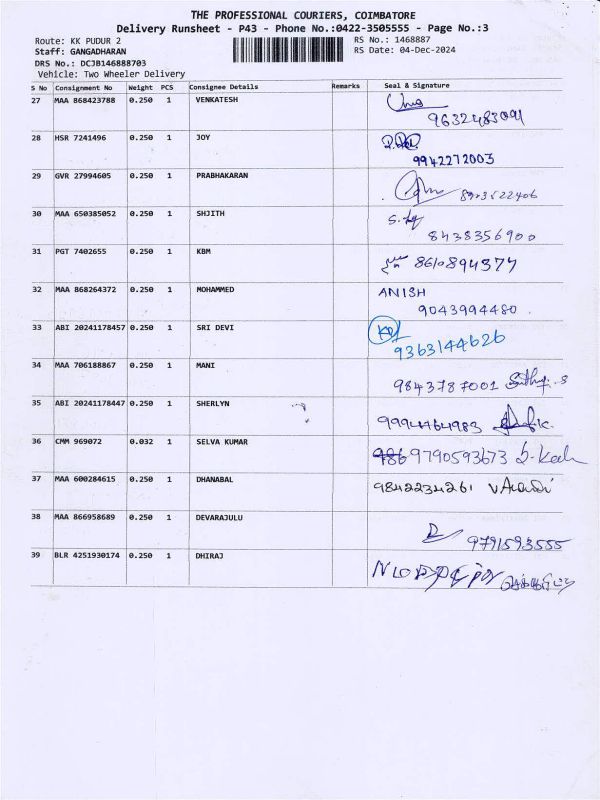 THE PROFESSIONAL COURIERS, COIMBATORE
Delivery Runsheet - P43 - Phone No.:0422-3505555 - Page No.:3
Route: KK PUDUR 2 RS No.: 1468887
Staff: GANGADHARAN RS Date: 04-Dec-2024
DRS No.: DCJB146888703
Vehicle: Two Wheeler Delivery
S No Consignment No Weight PCS Consignee Details Remarks Seal & Signature
27 MAA 868423788 0.250 1 VENKATESH
9632483091
28 HSR 7241496 0.250 1 JOY
9942272003
29 GVR 27994605 0.250 1 PRABHAKARAN
30 MAA 650385052 0.250 1 SHJITH
8438356900
31 PGT 7402655 0.250 1 KBM 8610894377
32 MAA 868264372 0.250 1 MOHAMMED ANISH
9043994480
33 ABI 20241178457 0.250 1 SRI DEVI
9363144626
34 MAA 706188867 0.250 1 MANI
9843787001
35 ABI 20241178447 0.250 1 SHERLYN
9994464983
36 CMM 969072 0.032 1 SELVA KUMAR 986 9790593673
37 MAA 600284615 0.250 1 DHANABAL 9842234261
38 MAA 866958689 0.250 1 DEVARAJULU
9791593555
39 BLR 4251930174 0.250 1 DHIRAJ